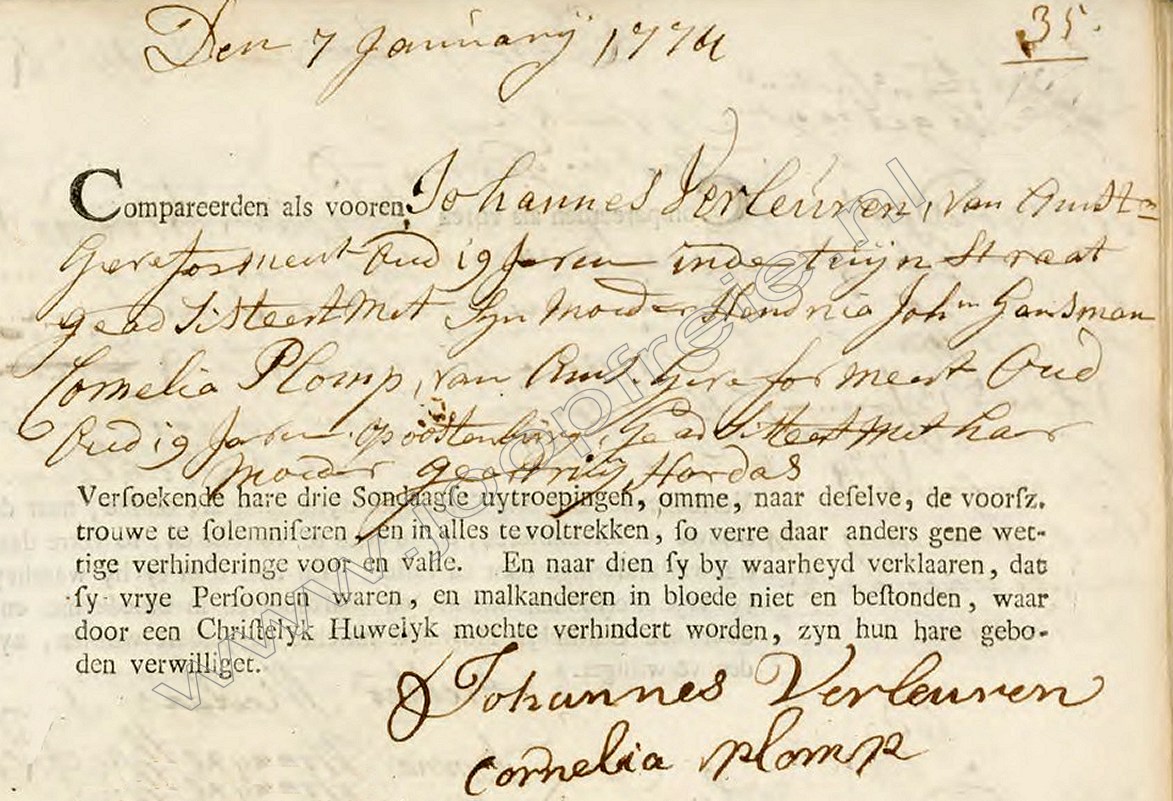 Den 7 Januarij 1774
35.
Compareerden als vooren Johannes Verleuren, van Amstm
Gereformeert Oud 19 Jaren in de tuijn Straat
geadsisteert met Syn Moeder Hendria Johan Gansman
Cornelia Plomp, van Ams. Gereformeert Oud
Oud 19 Jaren op oostenburg, Geadsisteert met haar
Moeder Geertruij Hordas
Versoekende hare drie Sondaagse uytroepingen, omme, naar deselve, de voorsz.
trouwe te solemniseren, en in alles te voltrekken, so verre daar anders gene wet-
tige verhinderinge voor en valle. En naar dien sy by waarheyd verklaaren, dat
sy vrye Persoonen waren, en malkanderen in bloede niet en bestonden, waar
door een Christelyk Huwelyk mochte verhindert worden, zyn hun hare gebo-
den verwilliget.
Johannes Verleuren
Cornelia plomp
www.joopfreie.nl